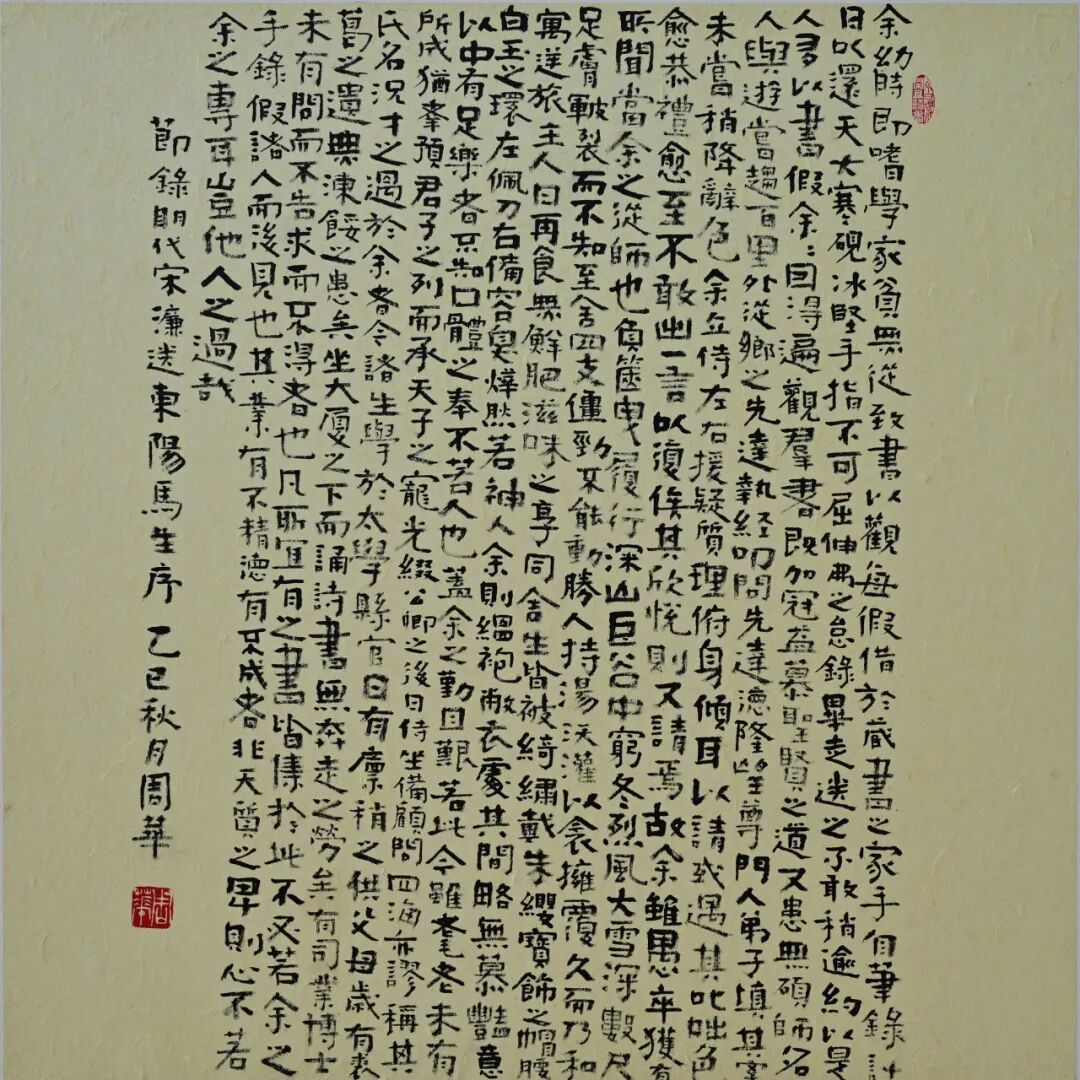 余幼時即嗜學家貧無從致書以觀每假借於藏書之家手自筆錄計
日以還天大寒硯冰堅手指不可屈伸弗之怠錄畢走送之不敢稍逾約以是
人多以書假余〻因得遍觀羣書既加冠益慕聖賢之道又患無碩師名
人與遊嘗趨百里外從鄉之先達執經叩問先達德隆望尊門人弟子填其室
未嘗稍降辭色余立侍左右援疑質理俯身傾耳以請或遇其叱咄色
愈恭禮愈至不敢出一言以復俟其欣悅則又請焉故余雖愚卒獲有
所聞當余之從師也負篋曳履行深山巨谷中窮冬烈風大雪深數尺
足膚皸裂而不知至舍四支僵勁不能動勝人持湯沃灌以衾擁覆久而乃和
寓逆旅主人日再食無鮮肥滋味之享同舍生皆被綺繡戴朱纓寶飾之帽腰
白玉之環左佩刀右備容臭燁然若神人余則縕袍敝衣處其間略無慕豔意
以中有足樂者不知口體之奉不若人也蓋余之勤且艱若此今雖耄老未有
所成猶幸預君子之列而承天子之寵光綴公卿之後日侍坐備顧問四海亦謬稱其
氏名況才之過於余者今諸生學於太學縣官日有廩稍之供父母歲有裘
葛之遺無凍餒之患矣坐大廈之下而誦詩書無奔走之勞矣有司業博士
未有問而不告求而不得者也凡所宜有之書皆集於此不必若余之
手錄假諸人而後見也其業有不精德有不成者非天質之卑則心不若
余之專耳豈他人之過哉
節錄明代宋濂送東陽馬生序 乙巳秋月周華
周華